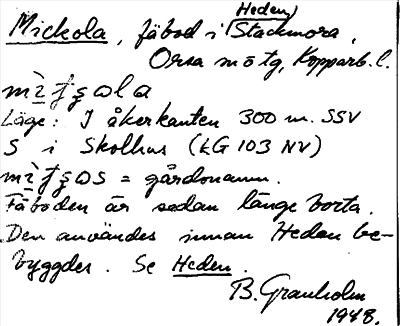 Mickola, fäbod i Heden, Stackmora,
Orsa sn o tg, Kopparb. l.
Läge: I åkerkanten 300 m. SSV
S i Skolhus (EG 103 NV)
= gårdsnamn.
Fäboden är sedan länge borta.
Den användes innan Heden be-
byggdes. Se Heden.
B. Granholm
1948.